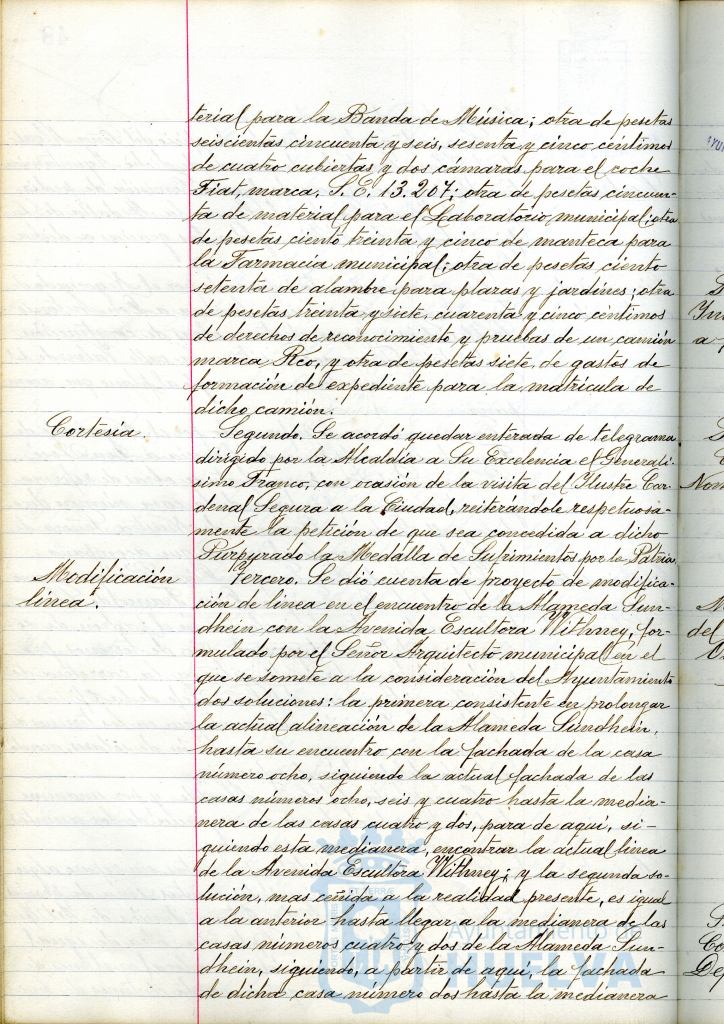 terial para la Banda de Música; otra de pesetas
seiscientas cincuenta y seis, sesenta y cinco centimos
de cuatro cubiertas y dos cámaras para el coche
Fiat, marca, S.E. 13.207; otra de pesetas cincuen-
ta de material para el Laboratorio municipal; otra
de pesetas ciento treinta y cinco de manteca para
la Farmacia municipal; otra de pesetas ciento
setenta de alambre para plazas y jardines; otra
de pesetas treinta y siete, cuarenta y cinco centimos
de derechos de reconocimiento y pruebas de un camión
marca Reo, y otra de pesetas siete, de gastos de
formación de expediente para la matrícula de
dicho camión.
Cortesía.
Segundo. Se acordó quedar enterada de telegrama
dirigido por la Alcaldía a Su Excelencia el Generalí-
simo Franco, con ocasión de la visita del Ilustre Car-
denal Segura a la Ciudad, reiterándole respetuosa-
mente la petición de que sea concedida a dicho
Purpurado la Medalla de Sufrimientos por la Patria.
Modificación
línea.
Tercero. Se dió cuenta de proyecto de modifica-
ción de linea en el encuentro de la Alameda Sun-
dhein con la Avenida Escultora Withney, for-
mulado por el Señor Arquitecto municipal en el
que se somete a la consideración del Ayuntamiento
dos soluciones: la primera consistente en prolongar
la actual alineación de la Alameda Sundhein,
hasta su encuentro con la fachada de la casa
número ocho, siguiendo la actual fachada de las
casas números ocho, seis y cuatro hasta la media-
nera de las casas cuatro y dos, para de aquí, si-
guiendo esta medianera, encontrar la actual linea
de la Avenida Escultora Withney; y la segunda so-
lución, mas ceñida a la realidad presente, es igual
a la anterior hasta llegar a la medianera de las
casas números cuatro y dos de la Alameda Sun-
dhein, siguiendo, a partir de aquí, la fachada
de dicha casa número dos hasta la medianera
Ayuntamiento de
HUELVA